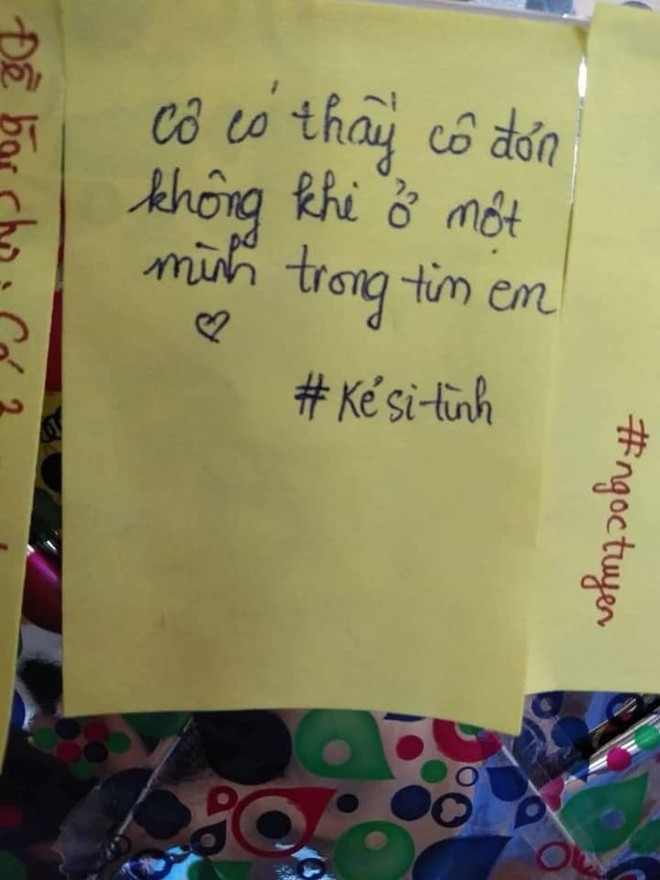 Cô có thấy cô đơn
không khi ở một
mình trong tim em
♡
#Kẻ si tình
#ngoctuyen
Để bài cho: Có